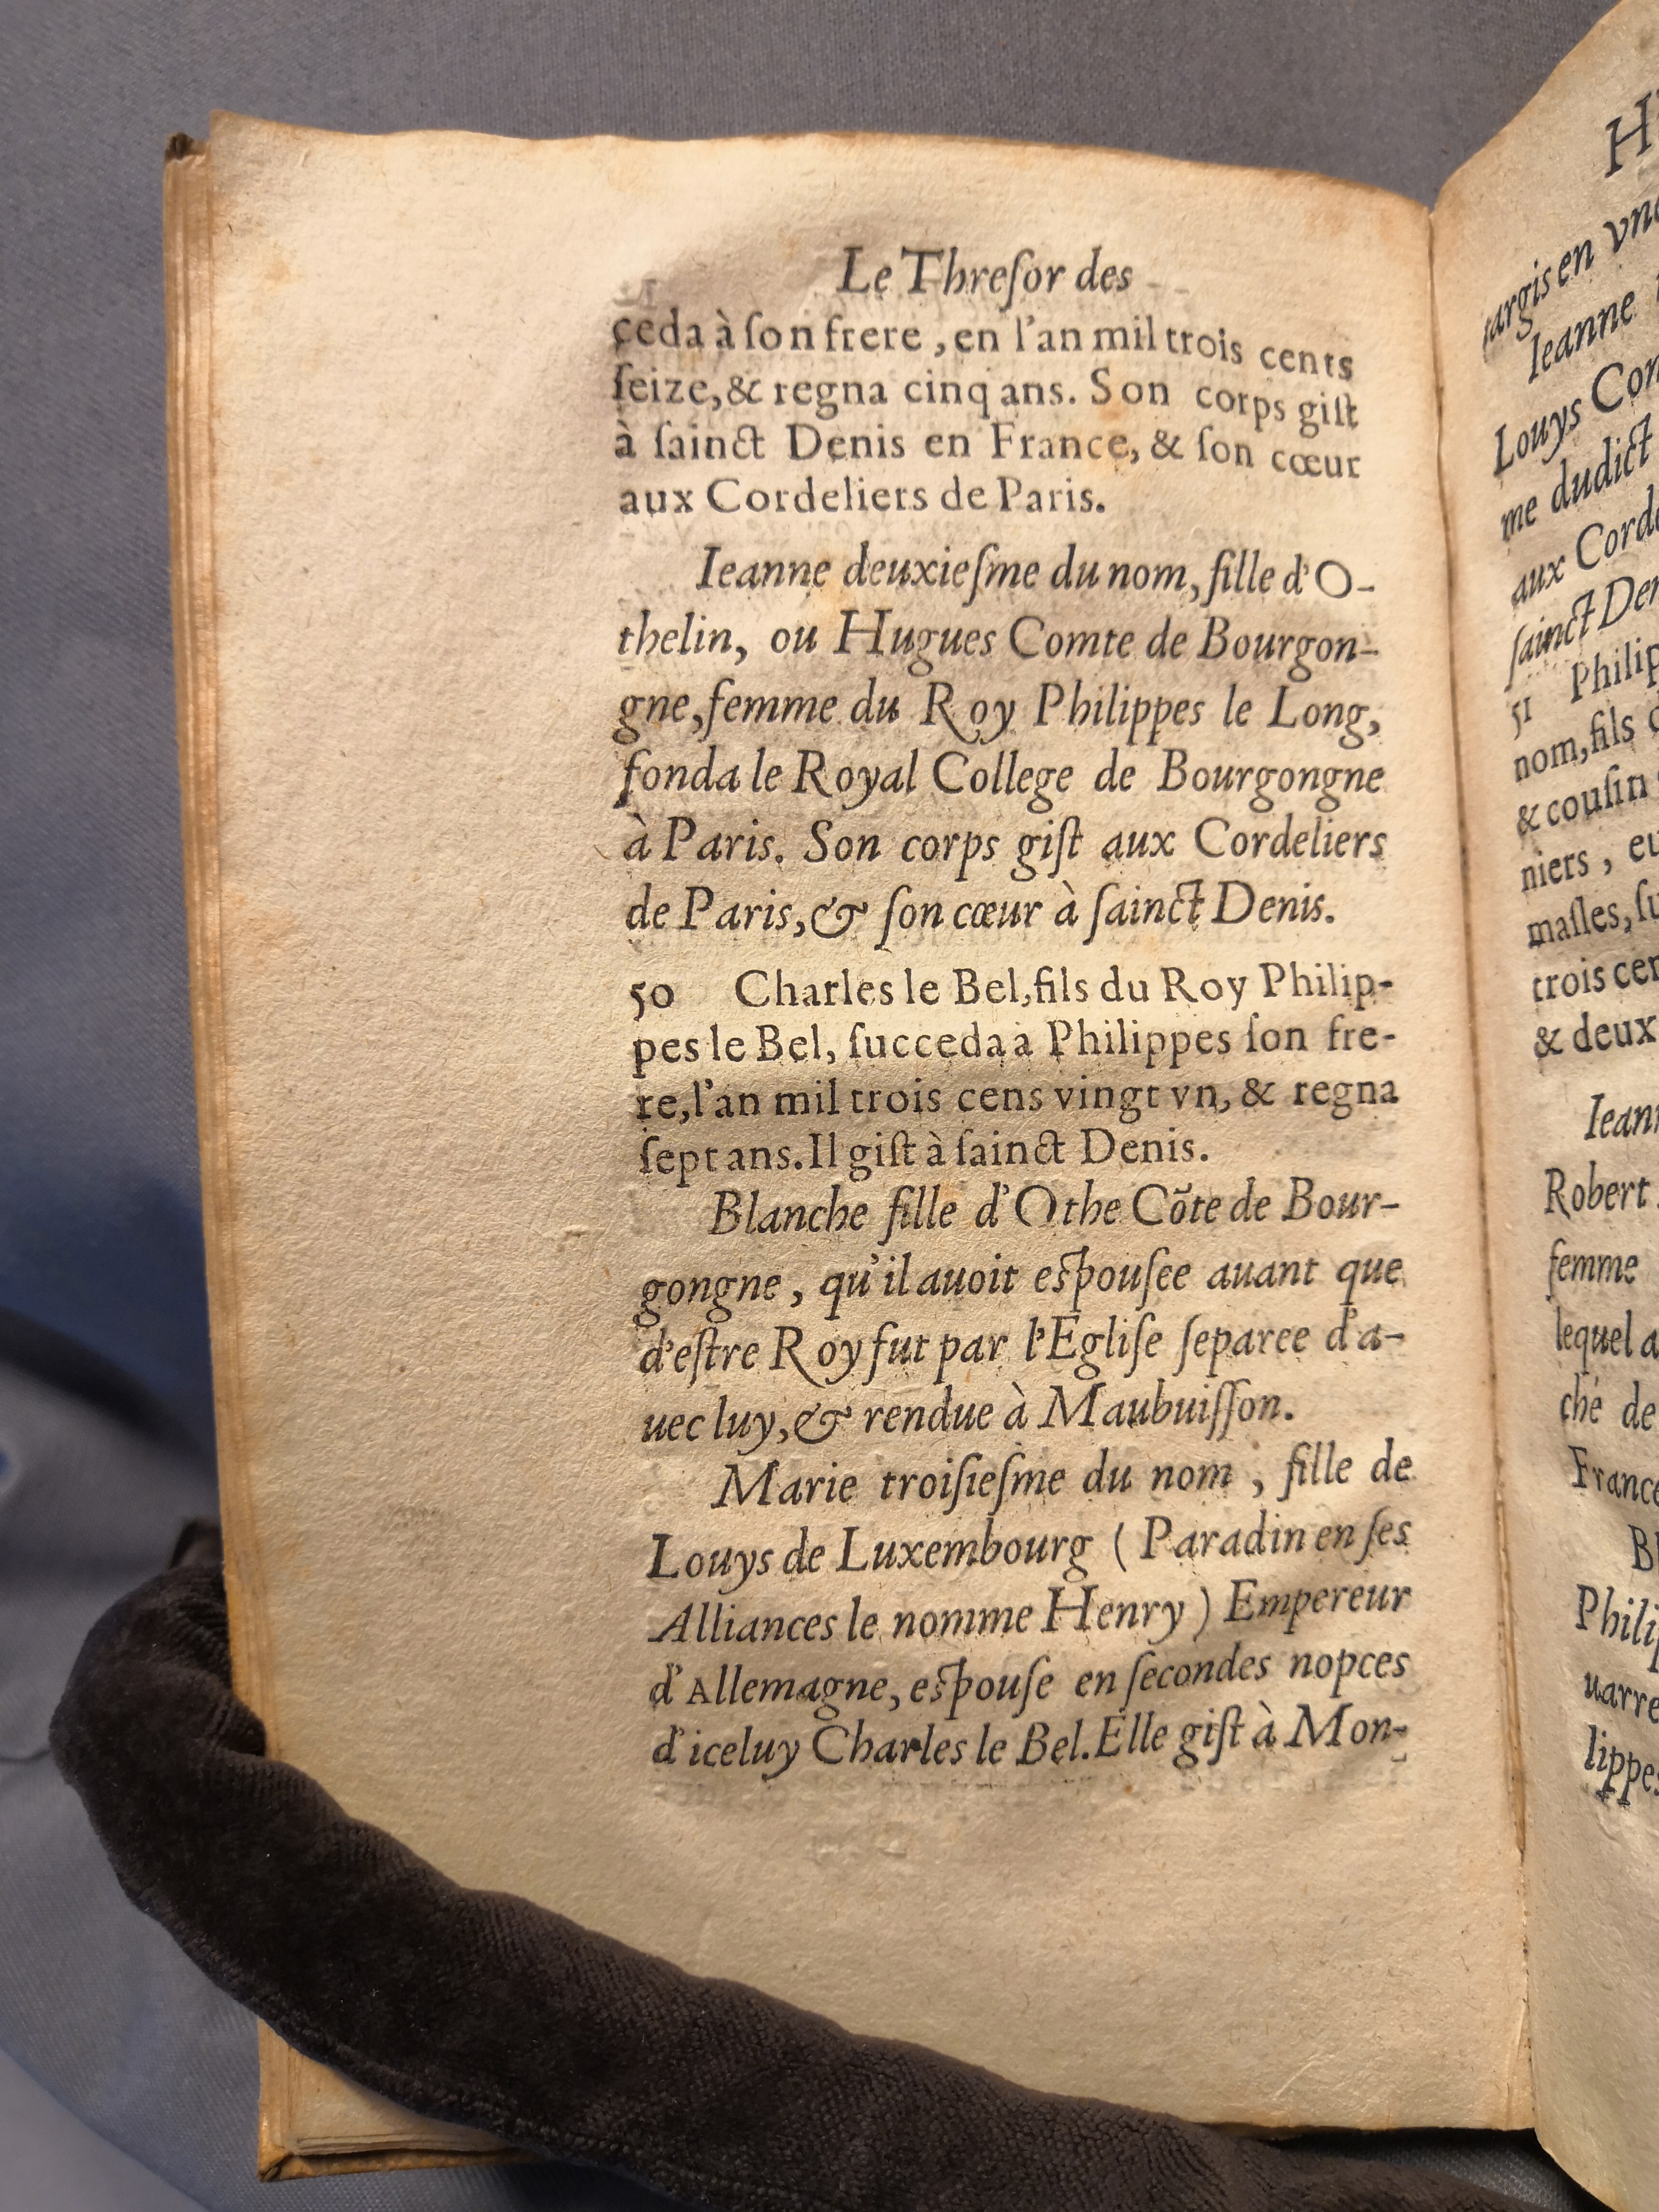 Le Threſor des
ceda à ſon frere, en l'an mil trois cents
ſeize, & regna cinq ans. Son corps giſt
à ſainct Denis en France, & ſon cœur
aux Cordeliers de Paris.
Ieanne deuxieſme du nom, fille d'O-
thelin, ou Hugues Comte de Bourgon-
gne, femme du Roy Philippes le Long,
fonda le Royal College de Bourgongne
à Paris. Son corps giſt aux Cordeliers
de Paris, & ſon cœur à ſainct Denis.
50 Charles le Bel, fils du Roy Philip-
pes le Bel, ſucceda a Philippes ſon fre-
re, l'an mil trois cens vingt vn, & regna
ſept ans. Il giſt à ſainct Denis.
Blanche fille d'Othe Cõte de Bour-
gongne, qu'il auoit eſpouſee auant que
d'eſtre Roy fut par l'Egliſe ſeparee d'a-
uec luy, & rendue à Maubuiſſon.
Marie troiſieſme du nom, fille de
Louys de Luxembourg (Paradin en ſes
Alliances le nomme Henry) Empereur
d'Allemagne, eſpouſe en ſecondes nopces
d'iceluy Charles le Bel. Elle giſt à Mon-
H
argis en vn
Ieanne
Louys
me dudict
aux
ſainct
51
nom, fils
& couſin
niers, eu
maſles,
trois
& deux
Robert
femme
lequel
ché de